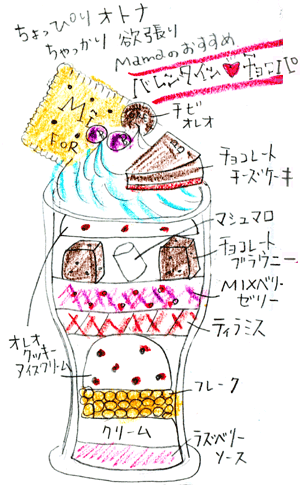 ちょっぴり オトナ
ちゃっかり 欲張り
Mamaのおすすめ
バレンタイン♥チョコパ
Mi
FOR
チビ
オレオ
チョコレート
チーズケーキ
マシュマロ
チョコレート
ブラウニー
MIXベリー
ゼリー
ティラミス
オレオ
クッキー
アイスクリーム
フレーク
クリーム
ラズベリー
ソース